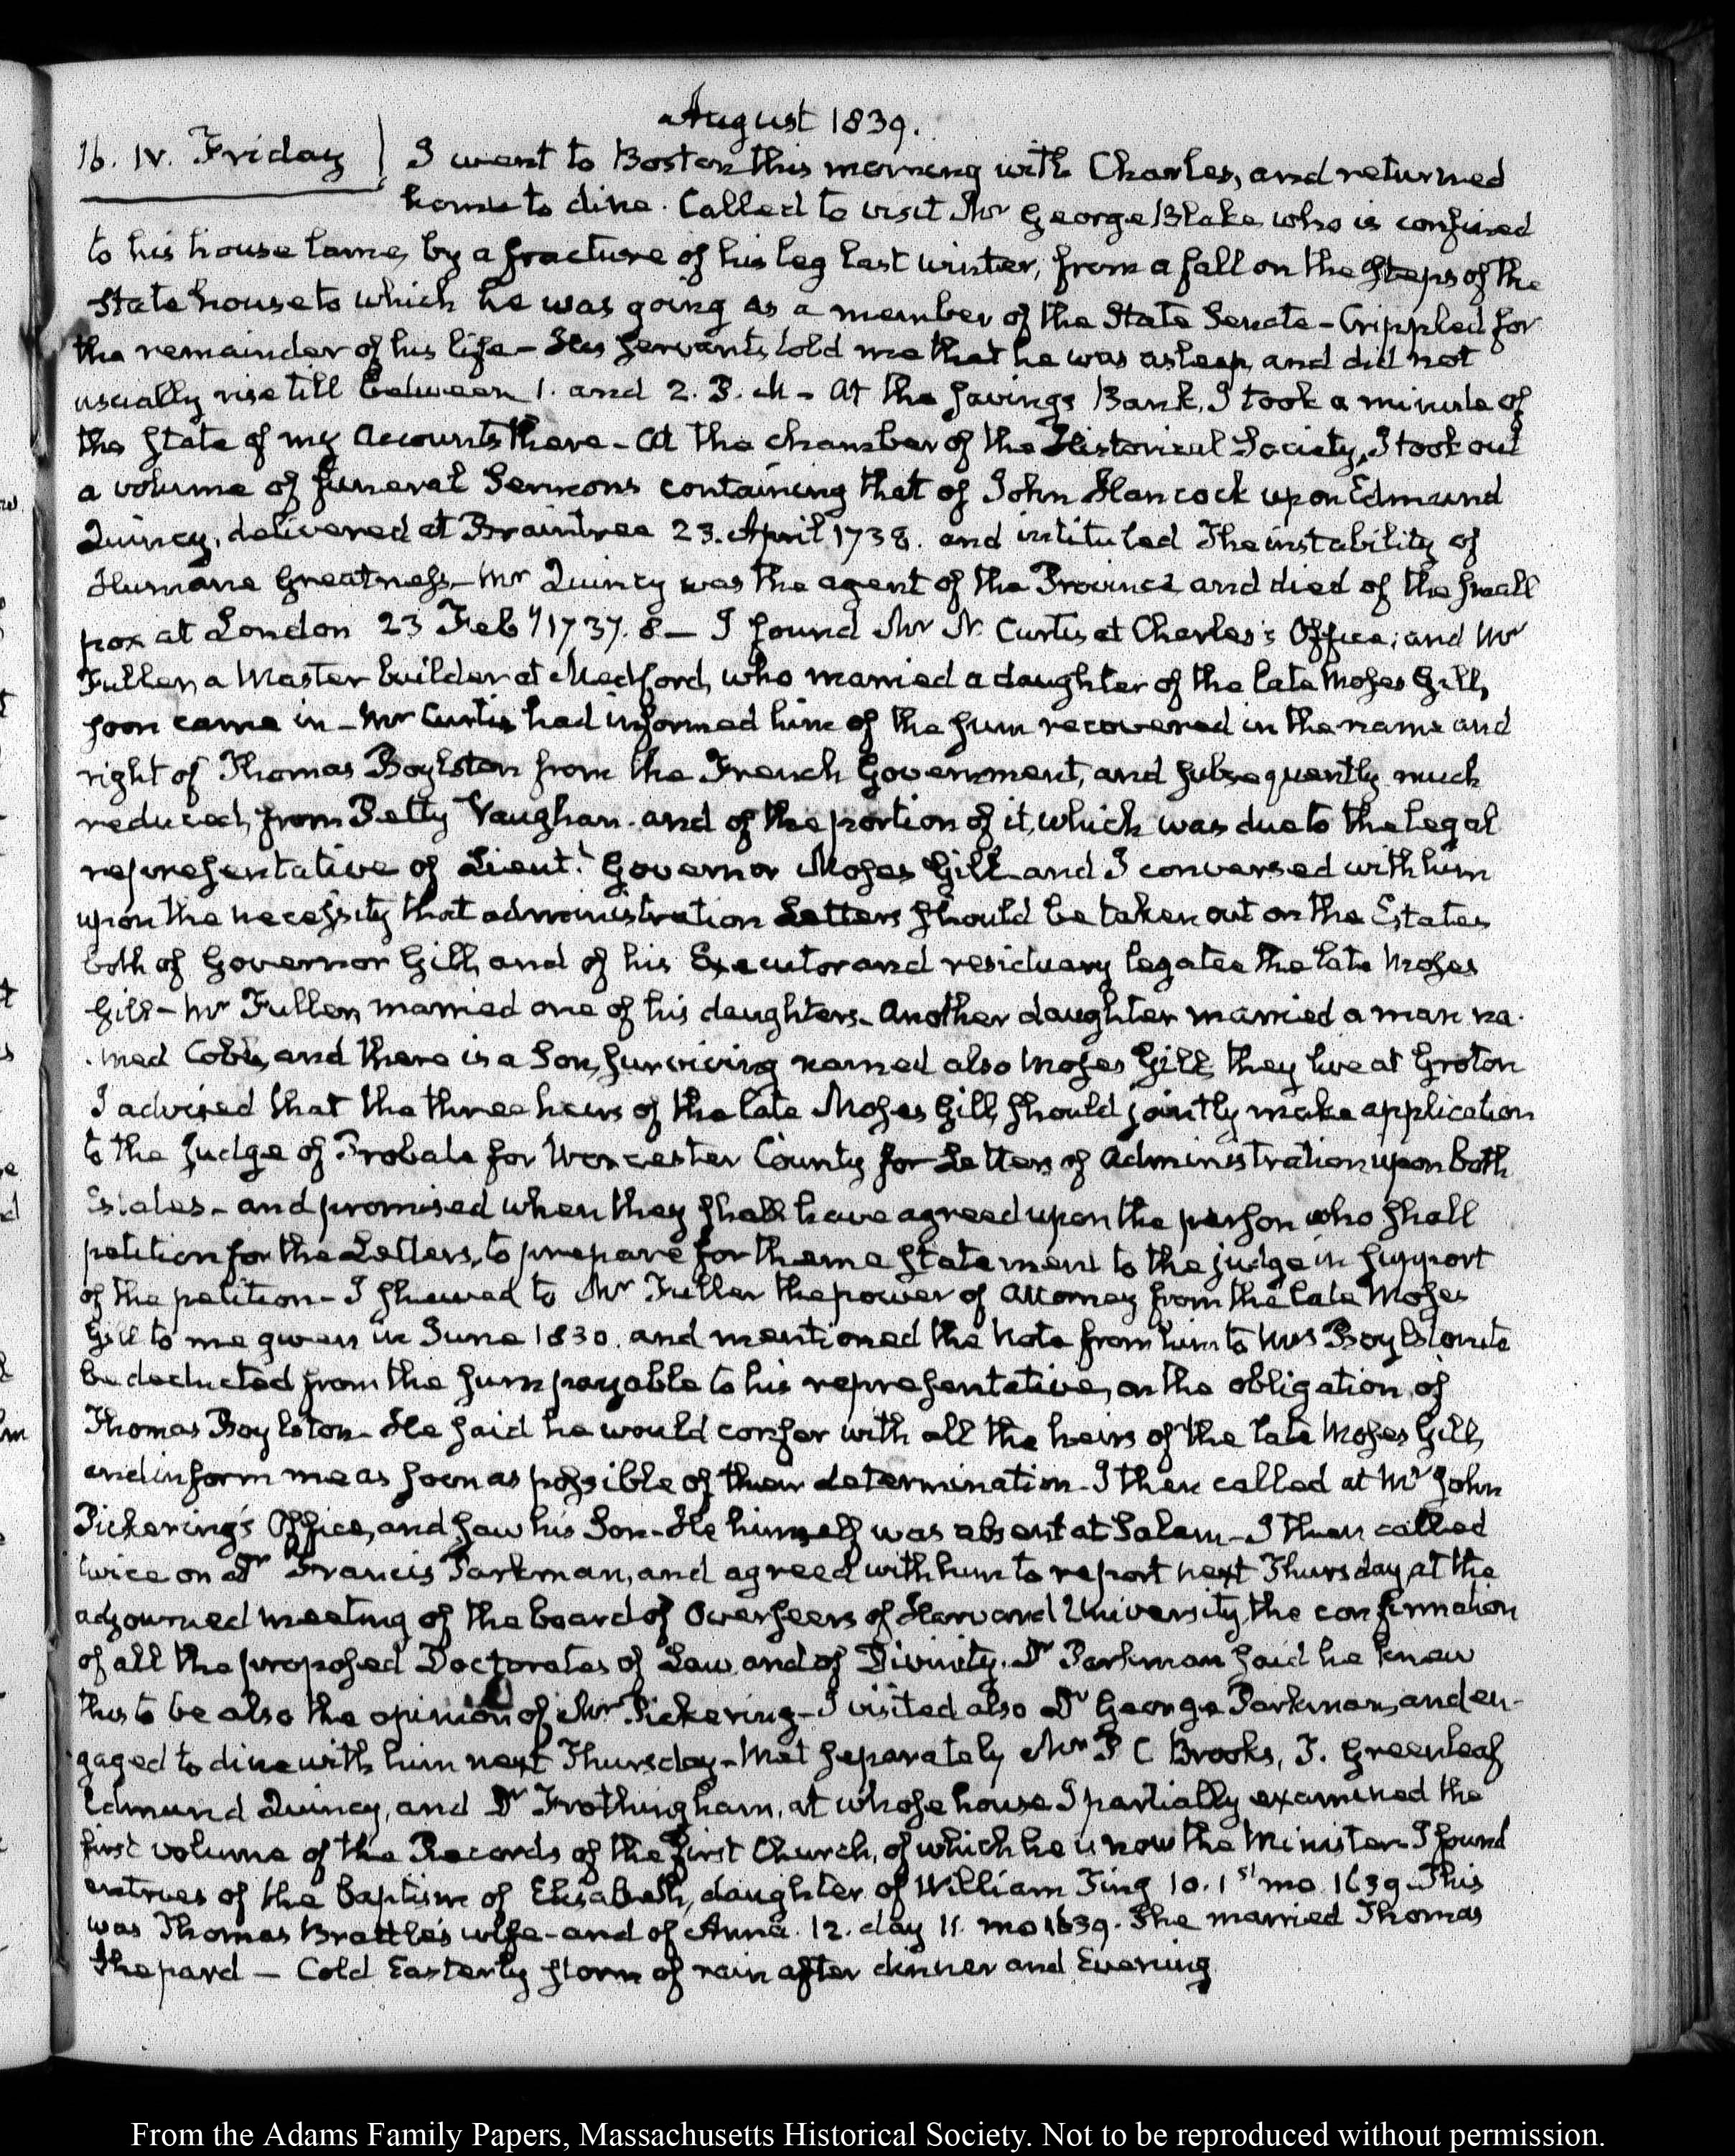 August 1839.
16. IV. Friday I went to Boston this morning with Charles, and returned
home to dine. Called to visit Mr George Blake, who is confined
to his house lame, by a fracture of his leg last winter, from a fall on the Steps of the
State house to which he was going as a member of the State Senate - Crippled for
the remainder of his life - His Servants told me that he was asleep, and did not
usually rise till between 1. and 2. P. M - At the Savings Bank, I took a minute of
the State of my Accounts there - At the chamber of the Historical Society, I took out
a volume of funeral Sermons containing that of John Hancock upon Edmund
Quincy, delivered at Braintree 23. April 1738. and intituled The instability of
Humane Greatness - Mr Quincy was the agent of the Province and died of the Small
pox at London 23 Feby 1737. 8 - I found Mr N. Curtis at Charles's Office; and Mr
Fuller, a Master builder at Medford, who married a daughter of the late Moses Gill,
soon came in - Mr Curtis had informed him of the sum recovered in the name and
right of Thomas Boylston from the French Government, and subsequently much
reduced, from Petty Vaughan. and of the portion of it, which was due to the legal
representative of Lieut.t Governor Moses Gill - and I conversed with him
upon the necessity that administration Letters should be taken out on the Estates
both of Governor Gill, and of his Executor and residuary legatee the late Moses
Gill - Mr Fuller, married one of his daughters - Another daughter married a man na-
-med Cobb, and there is a Son, surviving named also Moses Gill, they live at Groton
I advised that the three heirs of the late Moses Gill, should jointly make application
to the Judge of Probate for Worcester County for Letters of Administration upon both
Estates - and promised when they shall have agreed upon the person who shall
petition for the Letters, to prepare for them a statement to the judge in support
of the petition - I shewed to Mr Fuller the power of Attorney from the late Moses
Gill to me given in June 1830. and mentioned the Note from him to Mrs Boylston to
be deducted from the sum payable to his representative, on the obligation of
Thomas Boylston - He said he would confer with all the heirs of the late Moses Gill,
and inform me as soon as possible of their determination - I then called at Mr John
Pickering's Office, and saw his Son - He himself was absent at Salem - I then called
twice on Dr Francis Parkman, and agreed with him to report next Thursday, at the
adjourned meeting of the board of Overseers of Harvard University, the confirmation
of all the proposed Doctorates of Law, and of Divinity. Dr Parkman said he knew
this to be also the opinion of Mr Pickering - I visited also Dr George Parkman, and en-
gaged to dine with him next Thursday - Met separately Mr P C Brooks, T. Greenleaf
Edmund Quincy, and Dr Frothingham, at whose house I partially examined the
first volume of the Records of the first Church, of which he is now the Minister. I found
entries of the baptism of Elisabeth, daughter of William Ting 10. 1st mo 1639. This
was Thomas Brattle's wife - and of Anna. 12. day 11. mo 1639. She married Thomas
Shepard - Cold Easterly storm of rain after dinner and Evening
From the Adams Family Papers, Massachusetts Historical Society. Not to be reproduced without permission.